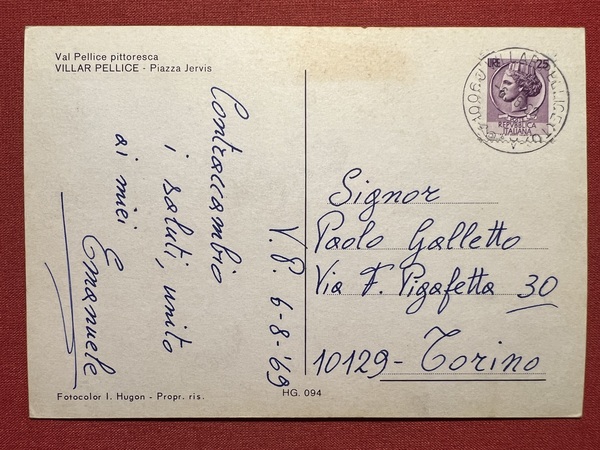 Val Pellice pittoresca
VILLAR PELLICE - Piazza Jervis
Contraccambio
i saluti, unito
ai miei
Emanuele
V. P. 6-8-'69
LIRE 25
REPVBBLICA
ITALIANA
Signor
Paolo Galletto
Via F. Pigafetta 30
10129 - Torino
Fotocolor I. Hugon - Propr. ris.
HG. 094